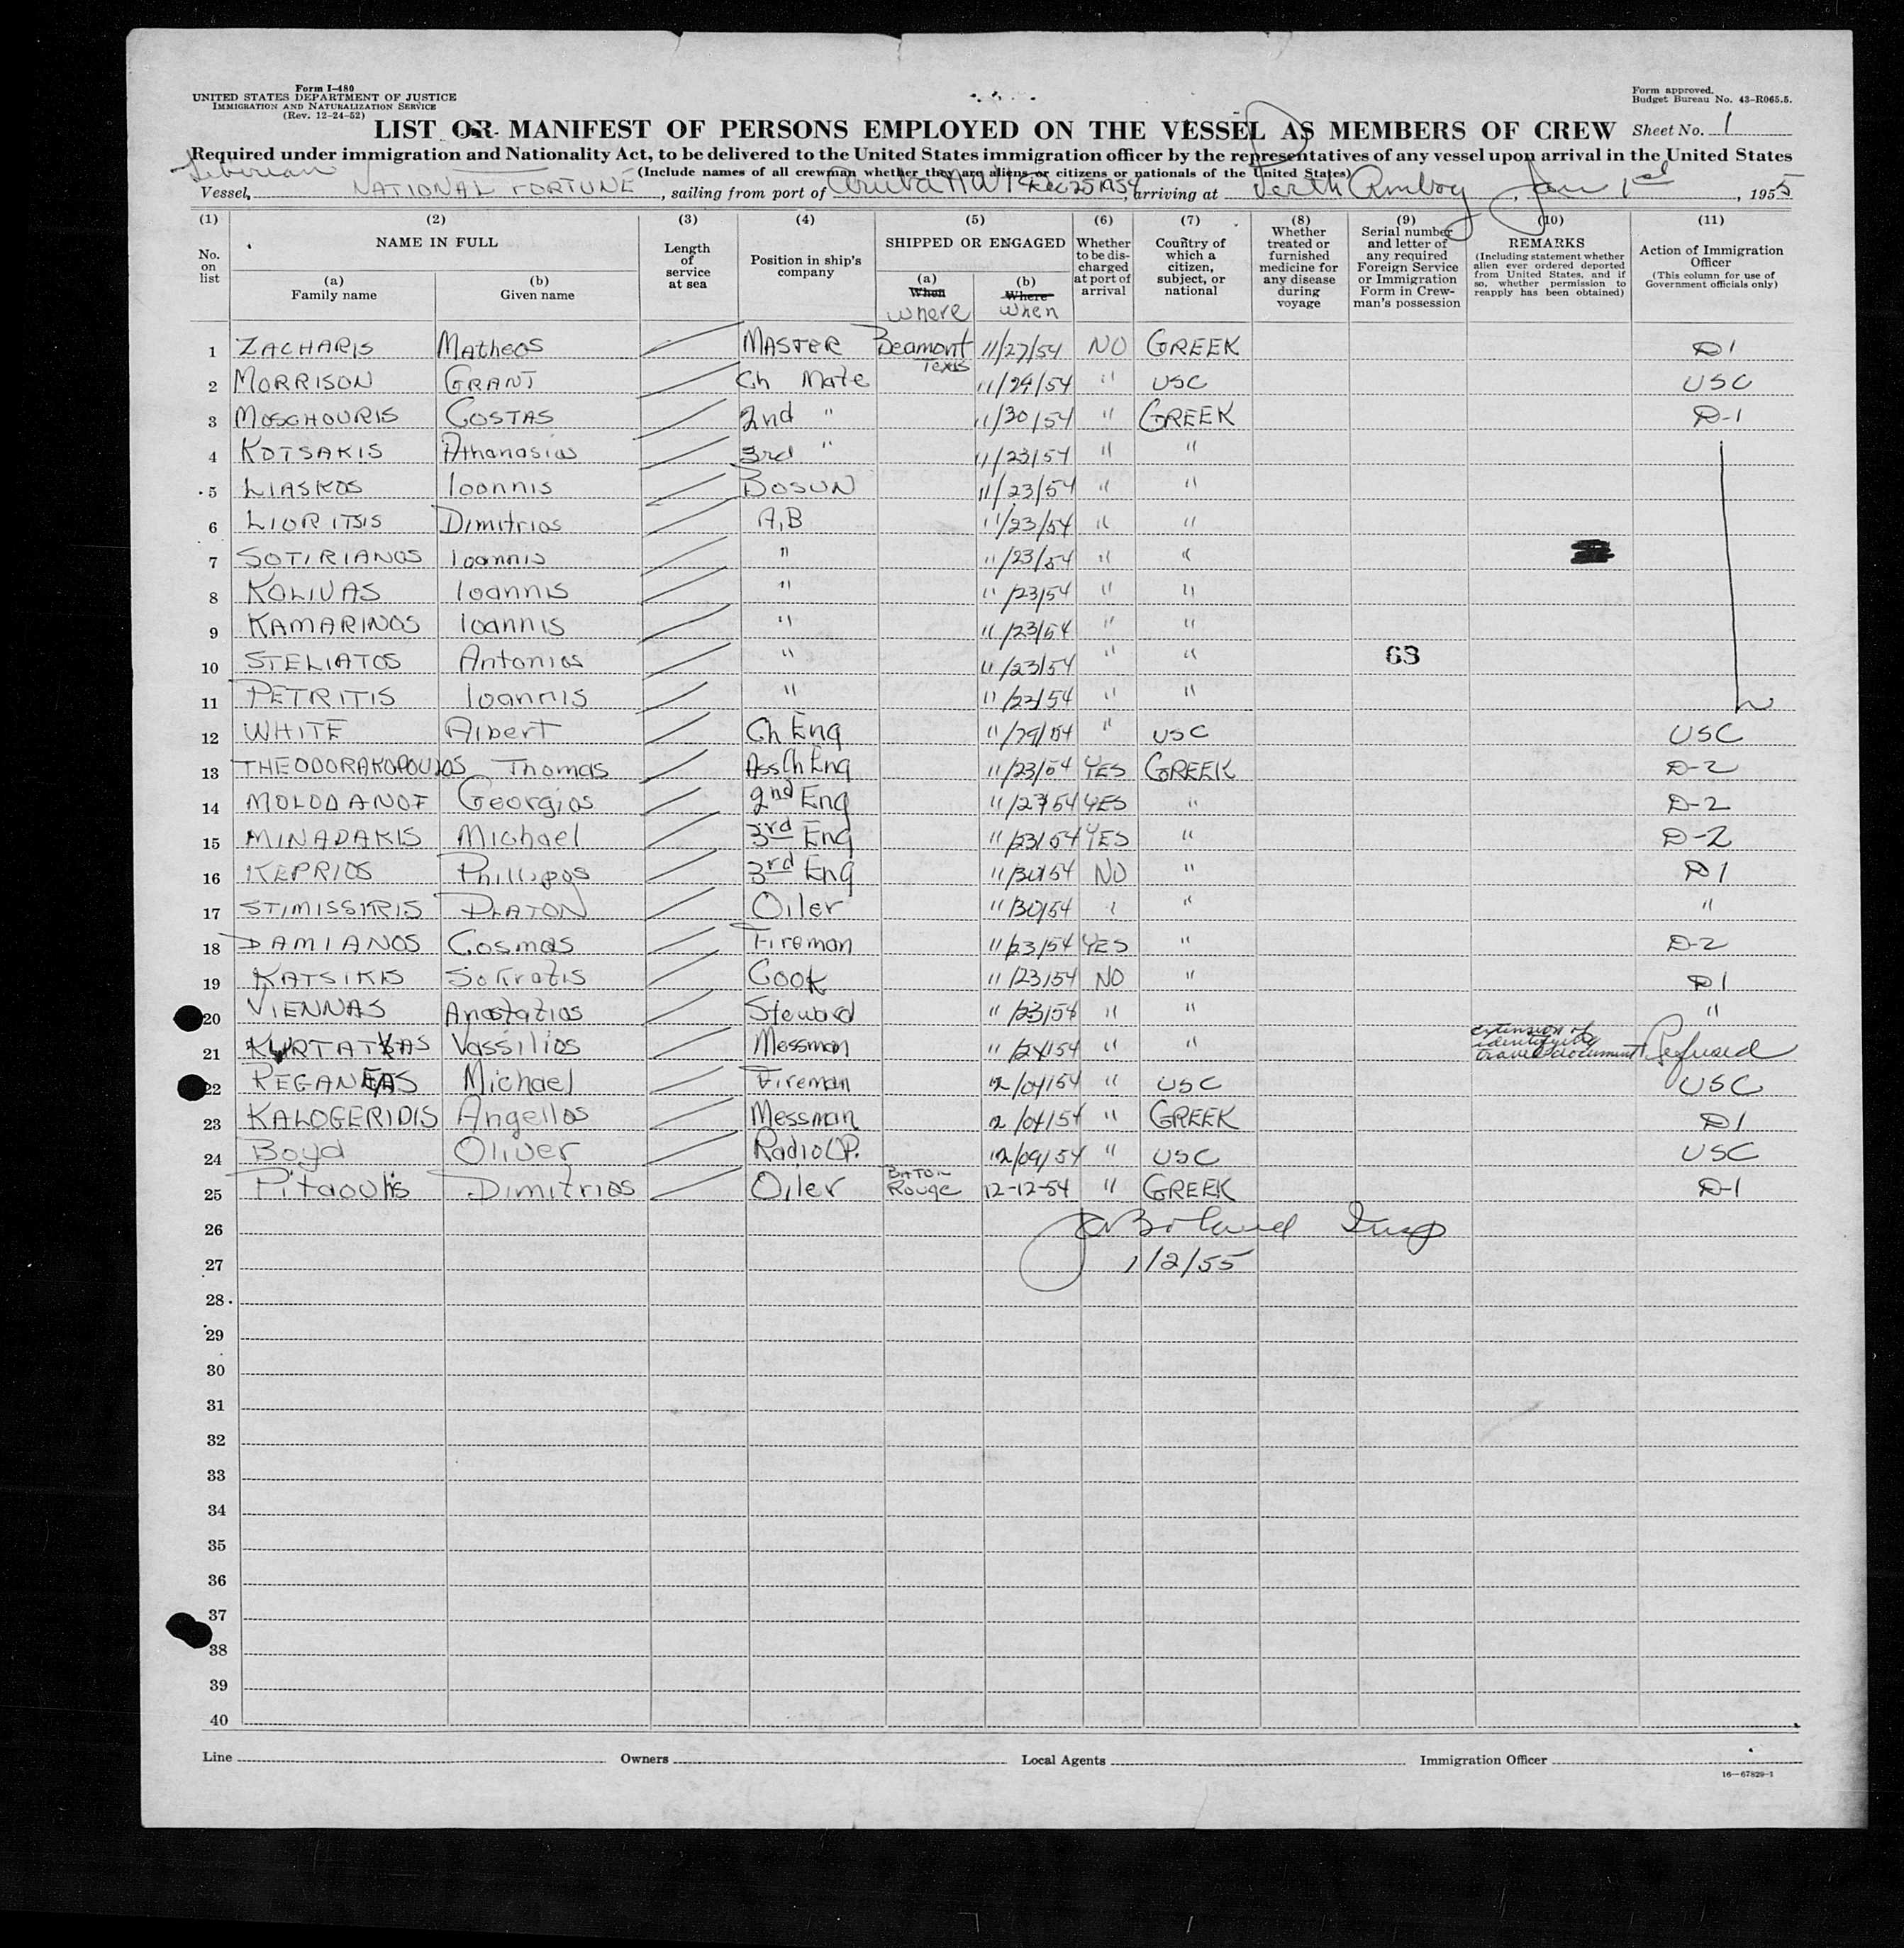 Form I-480
UNITED STATES DEPARTMENT OF JUSTICE
IMMIGRATION AND NATURALIZATION SERVICE
(Rev. 12-24-52)
Form approved.
Budget Bureau No. 43-R065.5.
LIST OR MANIFEST OF PERSONS EMPLOYED ON THE VESSEL AS MEMBERS OF CREW Sheet No. 1
Required under immigration and Nationality Act, to be delivered to the United States immigration officer by the representatives of any vessel upon arrival in the United States
(Include names of all crewman whether they are aliens or citizens or nationals of the United States)
Liberian
Vessel, NATIONAL FORTUNE, sailing from port of Aruba NWI Dec 25 1954, arriving at Perth Amboy, Jan 1st, 1955
(1) (2) (3) (4) (5) (6) (7) (8) (9) (10) (11)
No. on list
NAME IN FULL
(a) Family name
(b) Given name
Length of service at sea
Position in ship's company
SHIPPED OR ENGAGED
(a) When where
(b) Where when
Whether to be discharged at port of arrival
Country of which a citizen, subject, or national
Whether treated or furnished medicine for any disease during voyage
Serial number and letter of any required Foreign Service or Immigration Form in Crewman's possession
REMARKS
(Including statement whether alien ever ordered deported from United States, and if so, whether permission to reapply has been obtained)
Action of Immigration Officer
(This column for use of Government officials only)
1 ZACHARIS Matheos MASTER Beamont Texas 11/27/54 NO GREEK D1
2 MORRISON GRANT Ch Mate 11/29/54 " USC USC
3 MOSCHOURIS COSTAS 2nd " 11/30/54 " GREEK D-1
4 KOTSAKIS Athanasios 3rd " 11/23/54 " "
5 LIASKOS Ioannis BOSUN 11/23/54 " "
6 LIORITSIS Dimitrios A,B 11/23/54 " "
7 SOTIRIANOS Ioannis " 11/23/54 " "
8 KOLIVAS Ioannis " 11/23/54 " "
9 KAMARINOS Ioannis " 11/23/54 " "
10 STELIATOS Antonios " 11/23/54 " " 63
11 PETRITIS Ioannis " 11/23/54 " "
12 WHITE Albert Ch Eng 11/29/54 " USC USC
13 THEODORAKOPOULOS Thomas Ass Ch Eng 11/23/54 YES GREEK D-2
14 MOLODANOF Georgios 2nd Eng 11/27/54 YES " D-2
15 MINADAKIS Michael 3rd Eng 11/23/54 YES " D-2
16 KEPRIOS Phillipos 3rd Eng 11/30/54 NO " D1
17 STIMISSIRIS PLATON Oiler 11/30/54 " " "
18 DAMIANOS Cosmas Fireman 11/23/54 YES " D-2
19 KATSIKIS Sokratis Cook 11/23/54 NO " D1
20 VIENNAS Anastatios Steward 11/23/54 " " "
21 Vassilios Messman 11/24/54 " " extension of identifying travel document Refused
22 Michael Fireman 12/04/54 " USC USC
23 KALOGERIDIS Angellos Messman 12/04/54 " GREEK D1
24 Boyd Oliver Radio OP. 12/09/54 " USC USC
25 Pitaoulis Dimitrios Oiler BATON Rouge 12-12-54 " GREEK D-1
26 Insp
27 1/2/55
28
29
30
31
32
33
34
35
36
37
38
39
40
Line Owners Local Agents Immigration Officer
16—67829-1